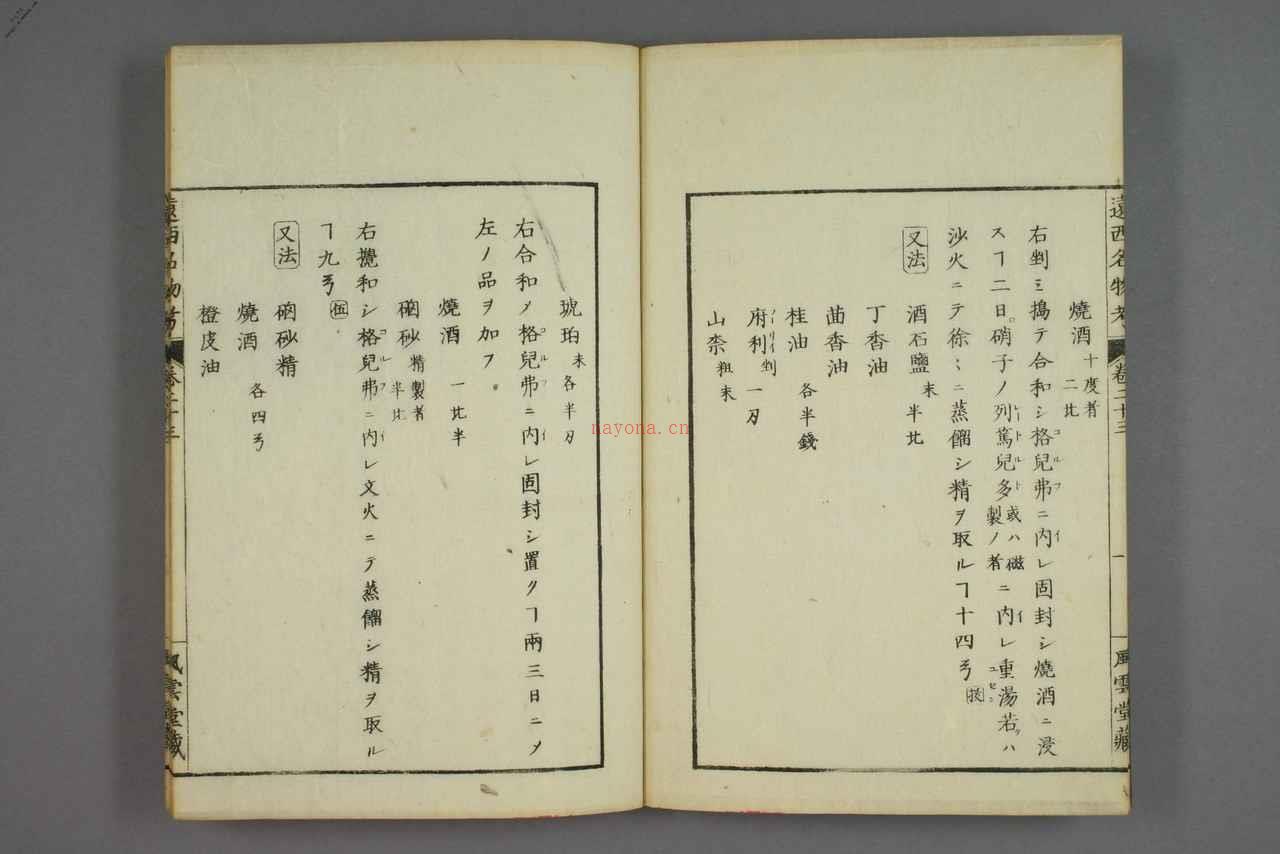 遠西名物考 卷二十三 一 風雲堂藏
燒酒 十度者 二比
右剉ミ搗テ合和シ格兒弗ニ内レ固封シ燒酒ニ浸
コルフ イ
スヿ二日硝子ノ列篤兒多 或ハ磁製ノ者 ニ内レ重湯若ハ
沙火ニテ徐々ニ蒸餾シ精ヲ取ルヿ十四ヲ
又法 酒石鹽 末 半比
丁香油
茴香油
桂油 各半錢
府利 剉 一刃
山柰 粗末
琥珀 末 各半刃
右合和メ格兒弗ニ内レ固封シ置クヿ兩三日ニメ
コルフ イ
左ノ品ヲ加フ
燒酒 一比半
硇砂 精製者 半比
右攪和シ格兒弗ニ内レ文火ニテ蒸餾シ精ヲ取ル
コルフ イ
ヿ九ヲ
又法 硇砂精
燒酒 各四ヲ
橙皮油
遠西名物考 卷二十三 風雲堂藏
nayona.cn